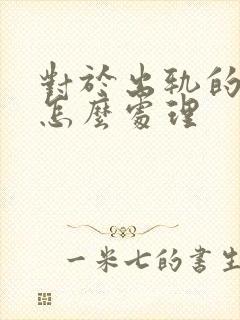 對於出軌的
怎麼處理
一米七的書生